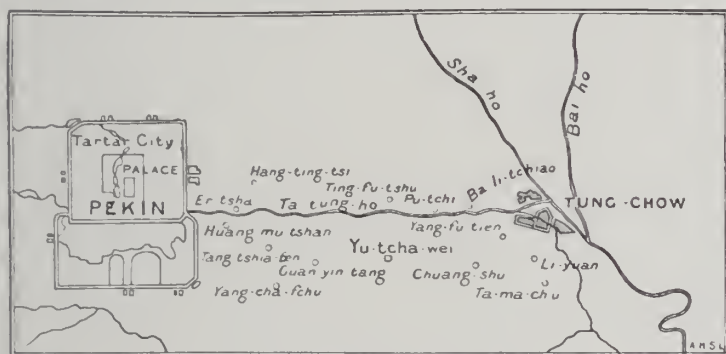 Sha ho
Bai ho
Tartar City
PALACE
PEKIN
Hang-ting-tsi
Ting-fu-tshu
Er tsha
Ta tung-ho
Pu-tchi
Ba li-tchiao
TUNG-CHOW
Huang mu tshan
Yang-fu tien
Yu-tcha-wei
Guan yin tang
Chuang-shu
Li-yuan
Yang-cha-fchu
Ta-ma-chu